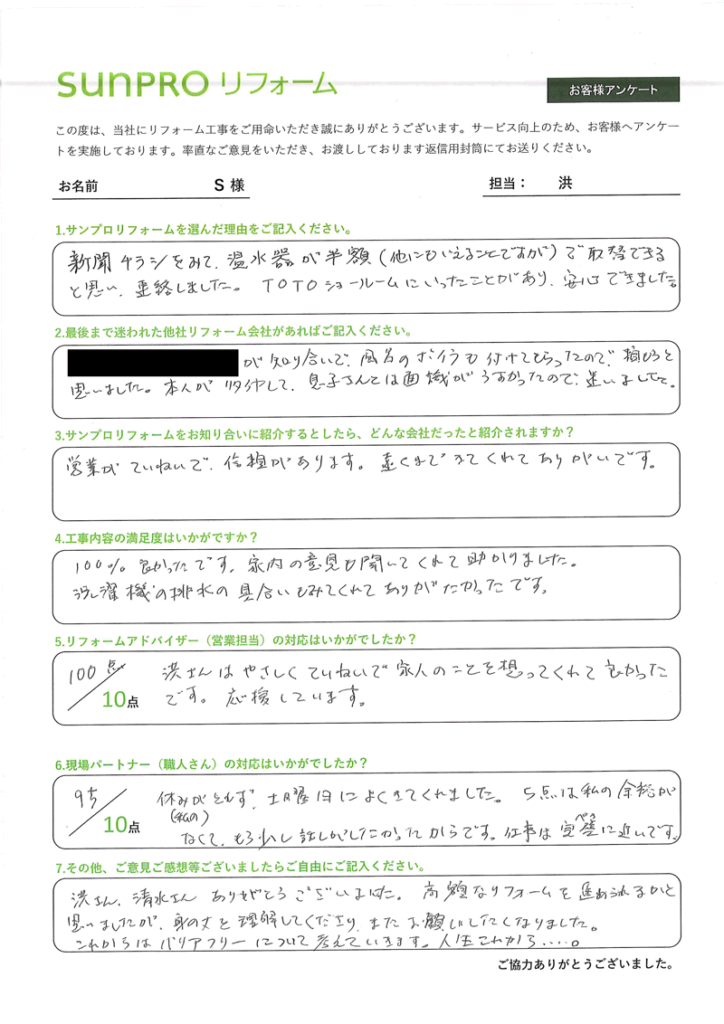 SUNPRO リフォーム
お客様アンケート
この度は、当社にリフォーム工事をご用命いただき誠にありがとうございます。サービス向上のため、お客様へアンケー
トを実施しております。率直なご意見をいただき、お渡ししております返信用封筒にてお送りください。
お名前 S 様 担当： 洪
1.サンプロリフォームを選んだ理由をご記入ください。
新聞チラシをみて、温水器が半額(他にもいえることですが)で取替できる
と思い、連絡しました。TOTOショールームにいったことがあり、安心できました。
2.最後まで迷われた他社リフォーム会社があればご記入ください。
が知り合いで、風呂のボイラも付けてもらったので、頼もうと
思いました。本人が他界して、息子さんとは面識がうすかったので、迷いました。
3.サンプロリフォームをお知り合いに紹介するとしたら、どんな会社だったと紹介されますか？
営業がていねいで、信頼があります。遠くまできてくれてありがたいです。
4.工事内容の満足度はいかがですか？
100% 良かったです。家内の意見も聞いてくれて助かりました。
洗濯機の排水の具合いもみてくれてありがたかったです。
5.リフォームアドバイザー（営業担当）の対応はいかがでしたか？
100点/10点
洪さんはやさしくていねいで家人のことを想ってくれて良かった
です。応援しています。
6.現場パートナー（職人さん）の対応はいかがでしたか？
95/10点
休みがとれず、土曜日によくきてくれました。5点は私の余裕が
(私の)
なくて、もう少し話しがしたかったからです。仕事は完璧に近いです。
ぺき
7.その他、ご意見ご感想等ございましたらご自由にご記入ください。
洪さん、清水さん ありがとうございました。高額なリフォームを進められるかと
思いましたが、身の丈を理解してくださり、またお願いしたくなりました。
これからはバリアフリーについて考えていきます。人生これから……。
ご協力ありがとうございました。